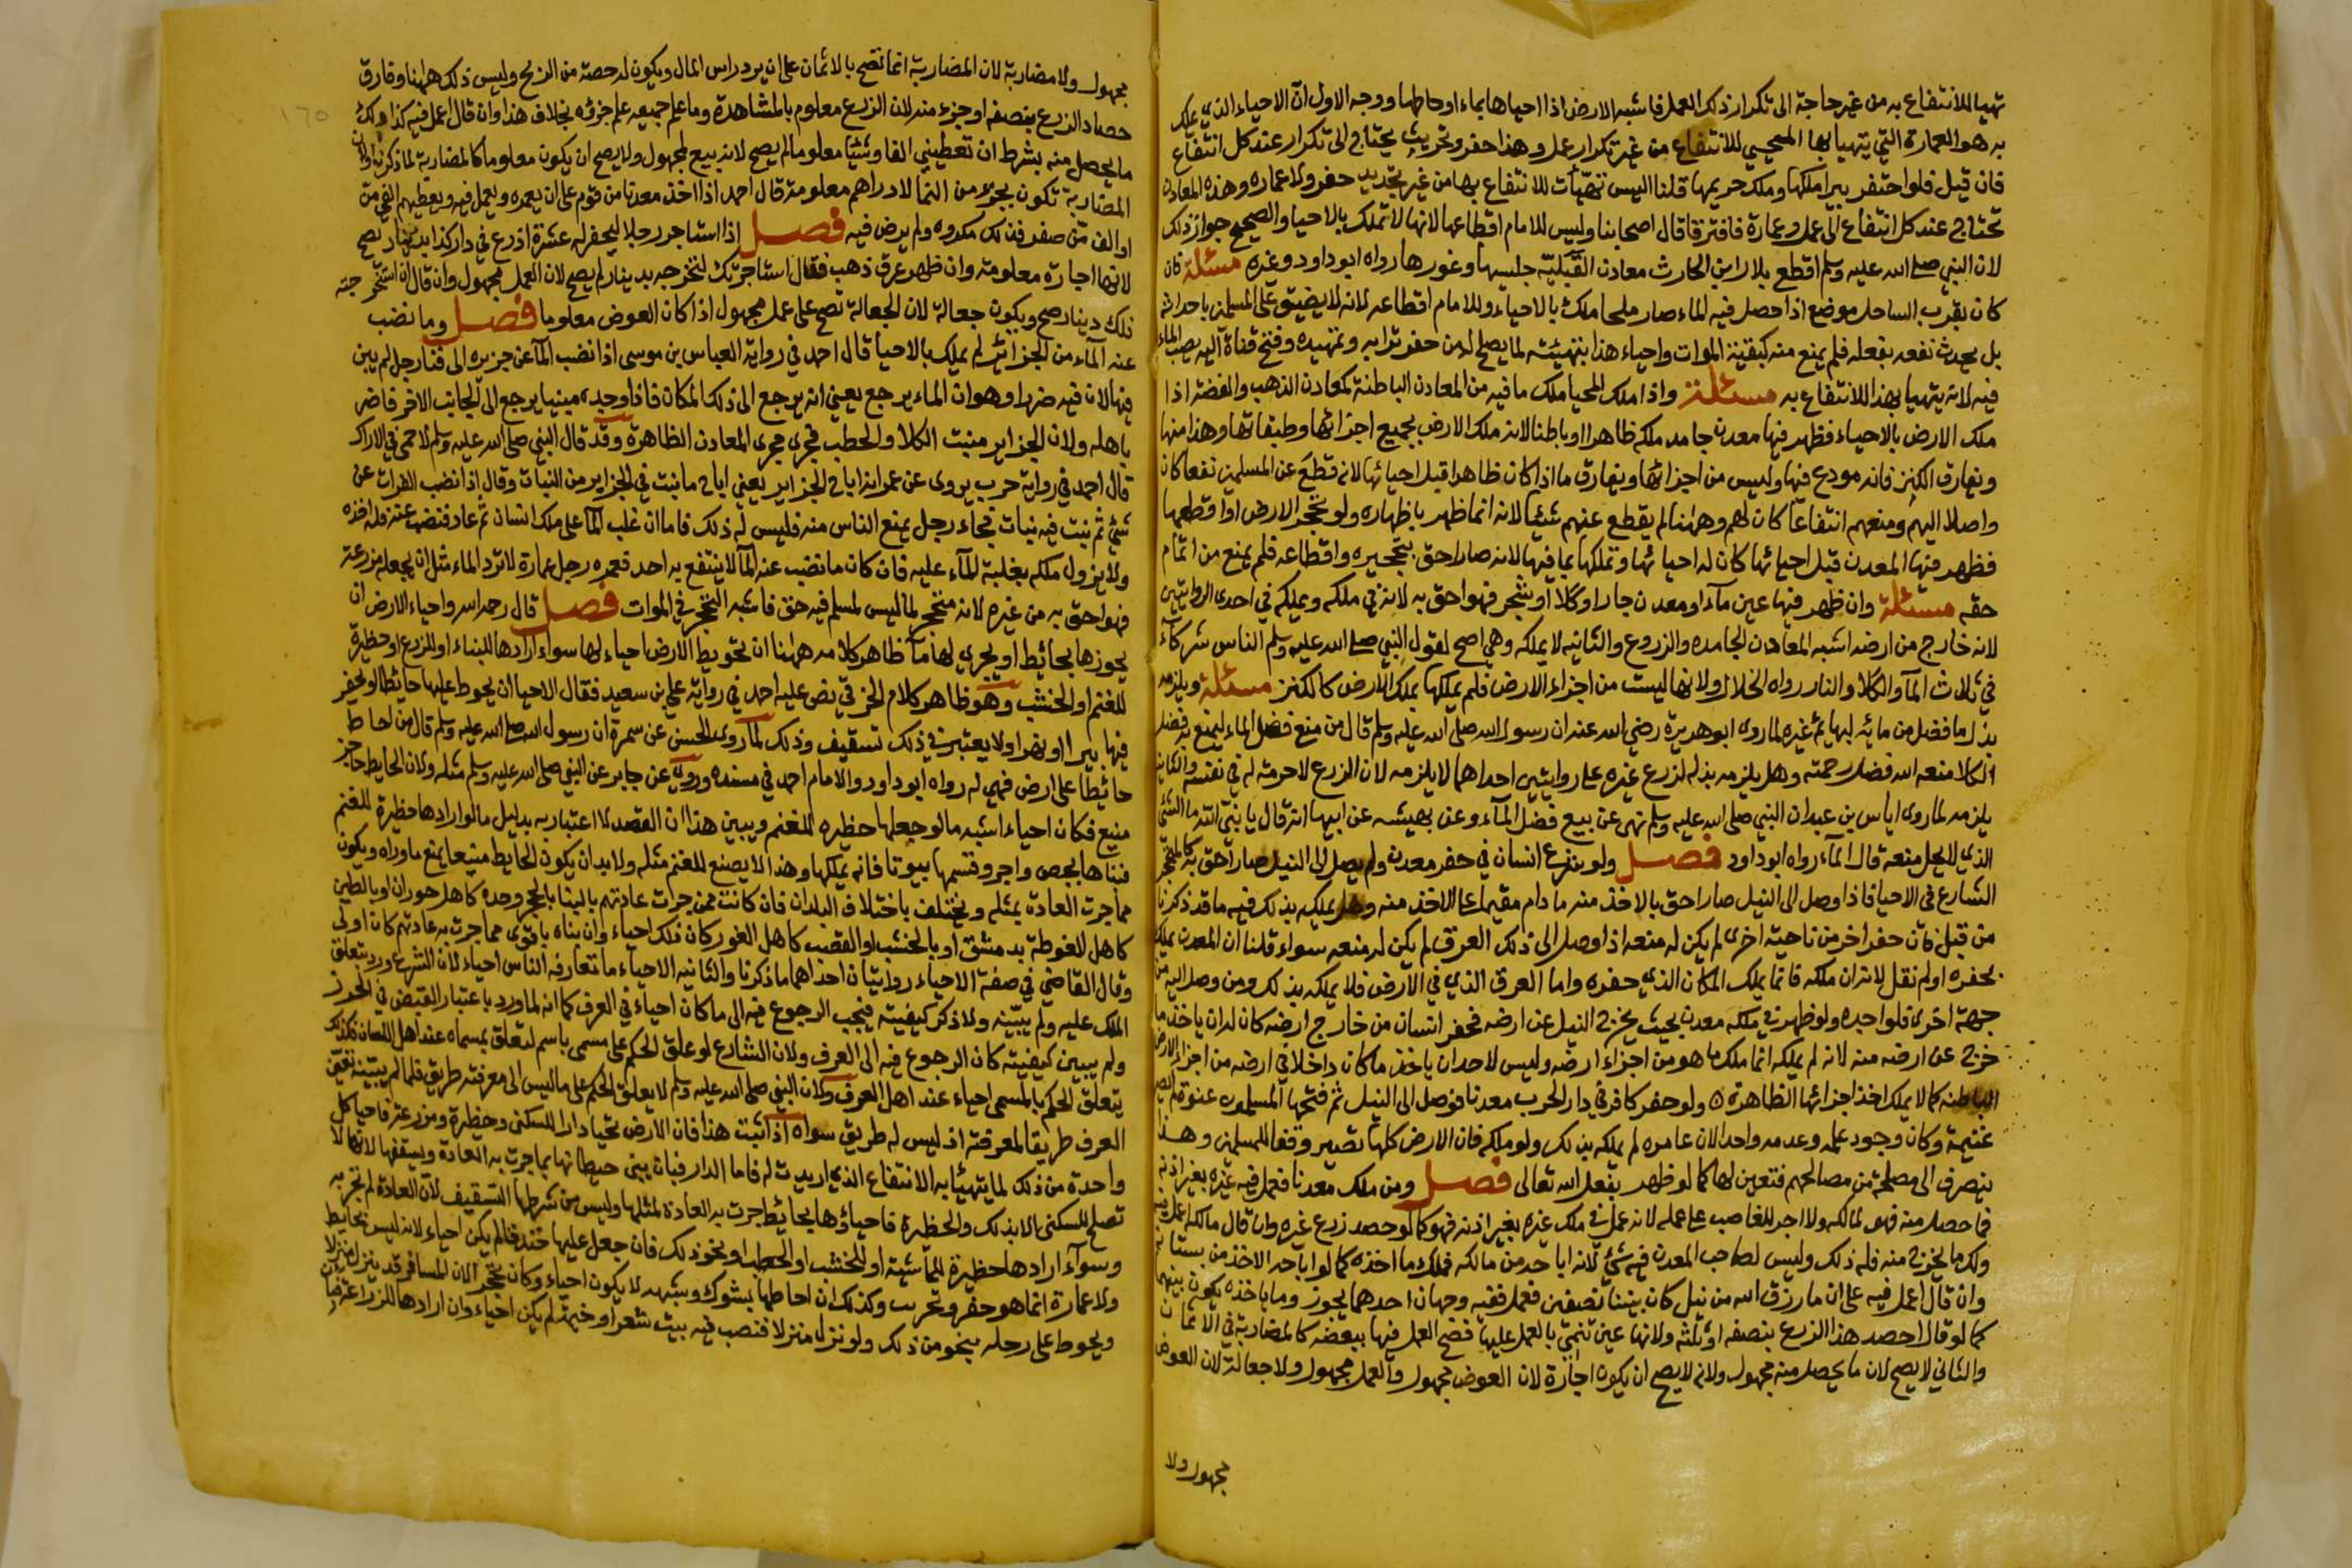 تهيا للانتفاع به من غير حاجة الى تكرار ذلك العمل فاشبه الارض اذا احياها بماء او حاطها ووجه الاول ان الاحياء الذي يملك
به هو العمارة التي يتهيا بها المحيي للانتفاع من غير تكرار عمل وهذا حفر وتخريب يحتاج الى تكرار عند كل انتفاع
فان قيل فلو احتفر بيرا ملكها وملك حريمها قلنا اليس تهيّات للانتفاع بها من غير تجديد حفر ولا عماره وهذه المعادن
تحتاج عند كل انتفاع الى عمل وعمارة فافترقا قال اصحابنا وليس للامام اقطاعها لانها لا تملك بالاحيا والصحيح جواز ذلك
لان النبي صلى الله عليه وسلم اقطع بلال ابن الحارث معادن القبليّه جلسيها وغورها رواه ابو داود وغيره مسئلة فان
كان بقرب الساحل موضع اذا حصل فيه الماء صار ملحا ملك بالاحياء وللامام اقطاعه لانه لا يضيق على المسلمين باحداثه
بل يحدث نفعه بفعله فلم يمنع منه كبقية الموات واحياء هذا بتهيئته لما يصلح له من حفر ترابه وتمهيده وفتح قناة اليه يصب الماء
فيه لانه يتهيا بهذا للانتفاع به مسئلة واذا ملك المحيا ملك ما فيه من المعادن الباطنة كمعادن الذهب والفضة اذا
ملك الارض بالاحياء فظهر فيها معدن جامد ملكه ظاهرا او باطنا لانه ملك الارض بجميع اجزائها وطبقاتها وهذا منها
ويفارق الكنز فانه مودع فيها وليس من اجزائها ويفارق ما اذا كان ظاهرا قبل احيائها لانه قطع عن المسلمين نفعا كان
واصلا اليهم ومنعهم انتفاعا كان لهم وههنا لم يقطع عنهم شيئا لانه انما ظهر باظهاره ولو تحجر الارض او اقطعها
فظهر فيها المعدن قبل احيائها كان له احيائها وتملكها بما فيها لانه صار احق بتحجيره واقطاعه فلم يمنع من اتمام
حقه مسئلة وان ظهر فيها عين مآء او معدن جار او كلا او شجر فهو احق به لانه في ملكه ويملكه في احدى الروايتين
لانه خارج من ارضه اشبه المعادن الجامده والزروع والثانيه لا يملكه وهي اصح لقول النبي صلى الله عليه وسلم الناس شركآء
في ثلاث المآ والكلا والنار رواه الخلال ولانها ليست من اجزاء الارض فلم يملكها بملك الارض كالكنز مسئلة ويلزمه
بذل ما فضل من مائه لبهائم غيره لما روى ابو هريرة رضي الله عنه ان رسول الله صلى الله عليه وسلم قال من منع فضل الماء ليمنع به فضل
الكلا منعه الله فضل رحمته وهل يلزمه بذله لزرع غيره على روايتين احداهما لا يلزمه لان الزرع لا حرمة له في نفسه والثانيه
يلزمه لما روى اياس بن عبد ان النبي صلى الله عليه وسلم نهى عن بيع فضل المآء وعن بهيسه عن ابيها انه قال يا نبي الله ما الشي
الذي لا يحل منعه قال المآء رواه ابو داود فصل ولو شرع انسان في حفر معدن ولم يصل الى النيل صار احق به كالمتحجر
الشارع في الاحيا فاذا وصل الى النيل صار احق بالاخذ منه ما دام مقيما على الاخذ منه وهل يملكه بذلك فيه ما قد ذكرنا
من قبل فان حفر اخر من ناحية اخرى لم يكن له منعه اذا وصل الى ذلك العرق لم يكن له منعه سواء قلنا ان المعدن يملك
بحفره او لم نقل لانه ان ملكه فانما يملك المكان الذي حفره واما العرق الذي في الارض فلا يملكه بذلك ومن وصل اليه من
جهة اخرى فله اخذه ولو ظهر في ملكه معدن بحيث يخرج النيل عن ارضه فحفر انسان من خارج ارضه كان له ان ياخذ ما
خرج عن ارضه منه لانه لم يملكه انما ملك ما هو من اجزاء ارضه وليس لاحد ان ياخذ ما كان داخلا في ارضه من اجزاء الارض
الباطنه كما لا يملك اخذ اجزائها الظاهرة ولو حفر كافر في دار الحرب معدنا فوصل الى النيل ثم فتحها المسلمون عنوة لم يصر
غنيمة وكان وجود عمله وعدمه واحدا لان عامره لم يملكه بذلك ولو ملكه فان الارض كلها تصير وقفا للمسلمين وهذا
ينصرف الى مصلحة من مصالحهم فتعين لها كما لو ظهر بفعل الله تعالى فصل ومن ملك معدنا فعمل فيه غيره بغير اذنه
فما حصل منه فهو لمالكه ولا اجر للغاصب على عمله لانه عمل في ملك غيره بغير اذنه فهو كما لو حصد زرع غيره وان قال مالكه اعمل فيه
ولك ما يخرج منه فله ذلك وليس لصاحب المعدن فيه شئ لانه اباحه من مالكه فملك ما اخذه كما لو اباحه الاخذ من بستانه
وان قال اعمل فيه على ان ما رزق الله من نيل كان بيننا نصفين فعمل ففيه وجهان احدهما يجوز وما ياخذه يكون بينهما
كما لو قال احصد هذا الزرع بنصفه او ثلثه ولانها عين تنمي بالعمل عليها فصح العمل فيها ببعضه كالمضاربة في الاثمان
والثاني لا يصح لان ما يحصل منه مجهول ولانه لا يصح ان يكون اجارة لان العوض مجهول والعمل مجهول ولا جعالة لان العوض
مجهول ولا
مجهول ولا مضاربة لان المضاربة انما تصح بالاثمان على ان يرد راس المال ويكون له حصة من الربح وليس ذلك ههنا وفارق
حصاد الزرع بنصفه او جزء منه لان الزرع معلوم بالمشاهدة وما علم جميعه علم جزؤه بخلاف هذا وان قال اعمل فيه كذا ولك
ما يحصل منه بشرط ان تعطيني الفا او شيئا معلوما لم يصح لانه بيع لمجهول ولا يصح ان يكون معلوما كالمضاربة لما ذكرنا ولان
المضاربة تكون بجزء من النما لا دراهم معلومة قال احمد اذا اخذ معدنا من قوم على ان يعمره ويعمل فيه ويعطيهم الفي من
او الف من صفر فذلك مكروه ولم يرض فيه فصل اذا استاجر رجلا ليحفر له عشرة اذرع في دار كذا بدينار صح
لانها اجارة معلومة وان ظهر عرق ذهب فقال استاجرتك لتخرجه بدينار لم يصح لان العمل مجهول وان قال ان استخرجته
ذلك دينار صح ويكون جعالة لان الجعالة تصح على عمل مجهول اذا كان العوض معلوما فصل وما نضب
عنه المآء من الجزائر لم يملك بالاحيا قال احمد في رواية العباس بن موسى اذا نضب المآ عن جزيره الى فنا رجل لم يبن
فيها لان فيه ضررا وهو ان الماء يرجع يعني انه يرجع الى ذلك المكان فاذا وجده مبنيا يرجع الى الجانب الاخر فاضر
باهله ولان الجزاير منبت الكلا والحطب فجرى مجرى المعادن الظاهرة وقد قال النبي صلى الله عليه وسلم لا حمى في الاراك
قال احمد في رواية حرب يروى عن عمر انه اباح الجزاير يعني اباح ما نبت في الجزاير من النبات وقال اذا نضب الفرات عن
شئ ثم نبت فيه نبات فجاء رجل يمنع الناس منه فليس له ذلك فاما ان غلب المآ على ملك انسان ثم عاد فنضب عنه فله اخذه
ولا يزول ملكه بغلبة المآء عليه فان كان ما نضب عنه المآ لا ينتفع به احد فعمره رجل عمارة لا ترد الماء مثل ان يجعله مزرعة
فهو احق به من غيره لانه متحجر لما ليس لمسلم فيه حق فاشبه التحجر في الموات فصل قال رحمه الله واحياء الارض ان
يحوزها بحائط او يجري لها مآ ظاهر كلامه ههنا ان تحويط الارض احياء لها سواء ارادها للبناء او للزرع او حظيرة
للغنم او الخشب وهو ظاهر كلام الخرقي نص عليه احمد في رواية علي بن سعيد فقال الاحيا ان يحوط عليها حائطا او يحفر
فيها بيرا او نهرا ولا يعتبر في ذلك تسقيف وذلك لما روى الحسن عن سمرة ان رسول الله صلى الله عليه وسلم قال من احاط
حائطا على ارض فهي له رواه ابو داود والامام احمد في مسنده وروي عن جابر عن النبي صلى الله عليه وسلم مثله ولان الحايط حاجز
منيع فكان احياء اشبه ما لو جعلها حظيره للغنم ويبين هذا ان القصد لا اعتبار به بدليل ما لو ارادها حظيرة للغنم
فبناها بجص واجر وقسمها بيوتا فانه يملكها وهذا لا يصنع للغنم مثله ولا بد ان يكون الحايط منيعا يمنع ما وراه ويكون
مما جرت العادة بمثله ويختلف باختلاف البلدان فان كانت ممن جرت عادتهم بالبنا بالحجر وحده كاهل حوران او بالطين
كاهل الغوطة بدمشق او بالخشب او القصب كاهل الغور كان ذلك احياء وان بناه باقوى مما جرت به عادتهم كان اولى
وقال القاضي في صفة الاحياء روايتان احداهما ما ذكرنا والثانيه الاحياء ما تعارفه الناس احياء لان الشرع ورد بتعلق
الملك عليه ولم يبيّنه ولا ذكر كيفيته فيجب الرجوع فيه الى ما كان احياء في العرف كما انه لما ورد باعتبار القبض في الحرز
ولم يبين كيفيته كان الرجوع فيه الى العرف ولان الشارع لو علق الحكم على مسمى باسم لتعلق بمسماه عند اهل اللسان فكذلك
يتعلق الحكم بالمسمى احياء عند اهل العرف ولان النبي صلى الله عليه وسلم لا يعلق الحكم على ما ليس الى معرفته طريق فلما لم يبينه تعين
العرف طريقا لمعرفته اذ ليس له طريق سواه اذا ثبت هذا فان الارض تحيا دارا للسكنى وحظيرة ومزرعة فاحيا كل
واحدة من ذلك لما يتهيا به الانتفاع الذي اريدت له فاما الدار فبان يبني حيطانها بما جرت به العادة ويسقفها لانها لا
تصلح للسكنى الا بذلك والحظيرة فاحياؤها بحائط جرت به العادة لمثلها وليس من شرطها التسقيف لان العادة لم تجر به
وسوآء ارادها حظيرة للماشية او للخشب او الحطب او نحو ذلك فان جعل عليها خندقا لم يكن احياء لانه ليس بحايط
ولا عمارة انما هو حفر وتخريب وكذلك ان احاطها بشوك وشبهه لا يكون احياء وكان تحجرا لان المسافر قد ينزل منزلا
ويحوط على رحله بنحو من ذلك ولو نزل منزلا فنصب فيه بيت شعر او خيمة لم يكن احياء وان ارادها للزراعة